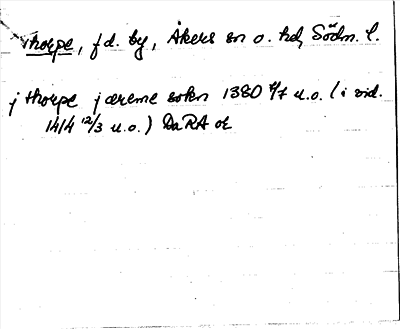 Thorpe, f d. by, Åkers sn o. hd, Södm. l.
j thorpe j áreme sokn 1380 4/7 u.o. (i vid.
1414 12/3 u.o.) DaRA or